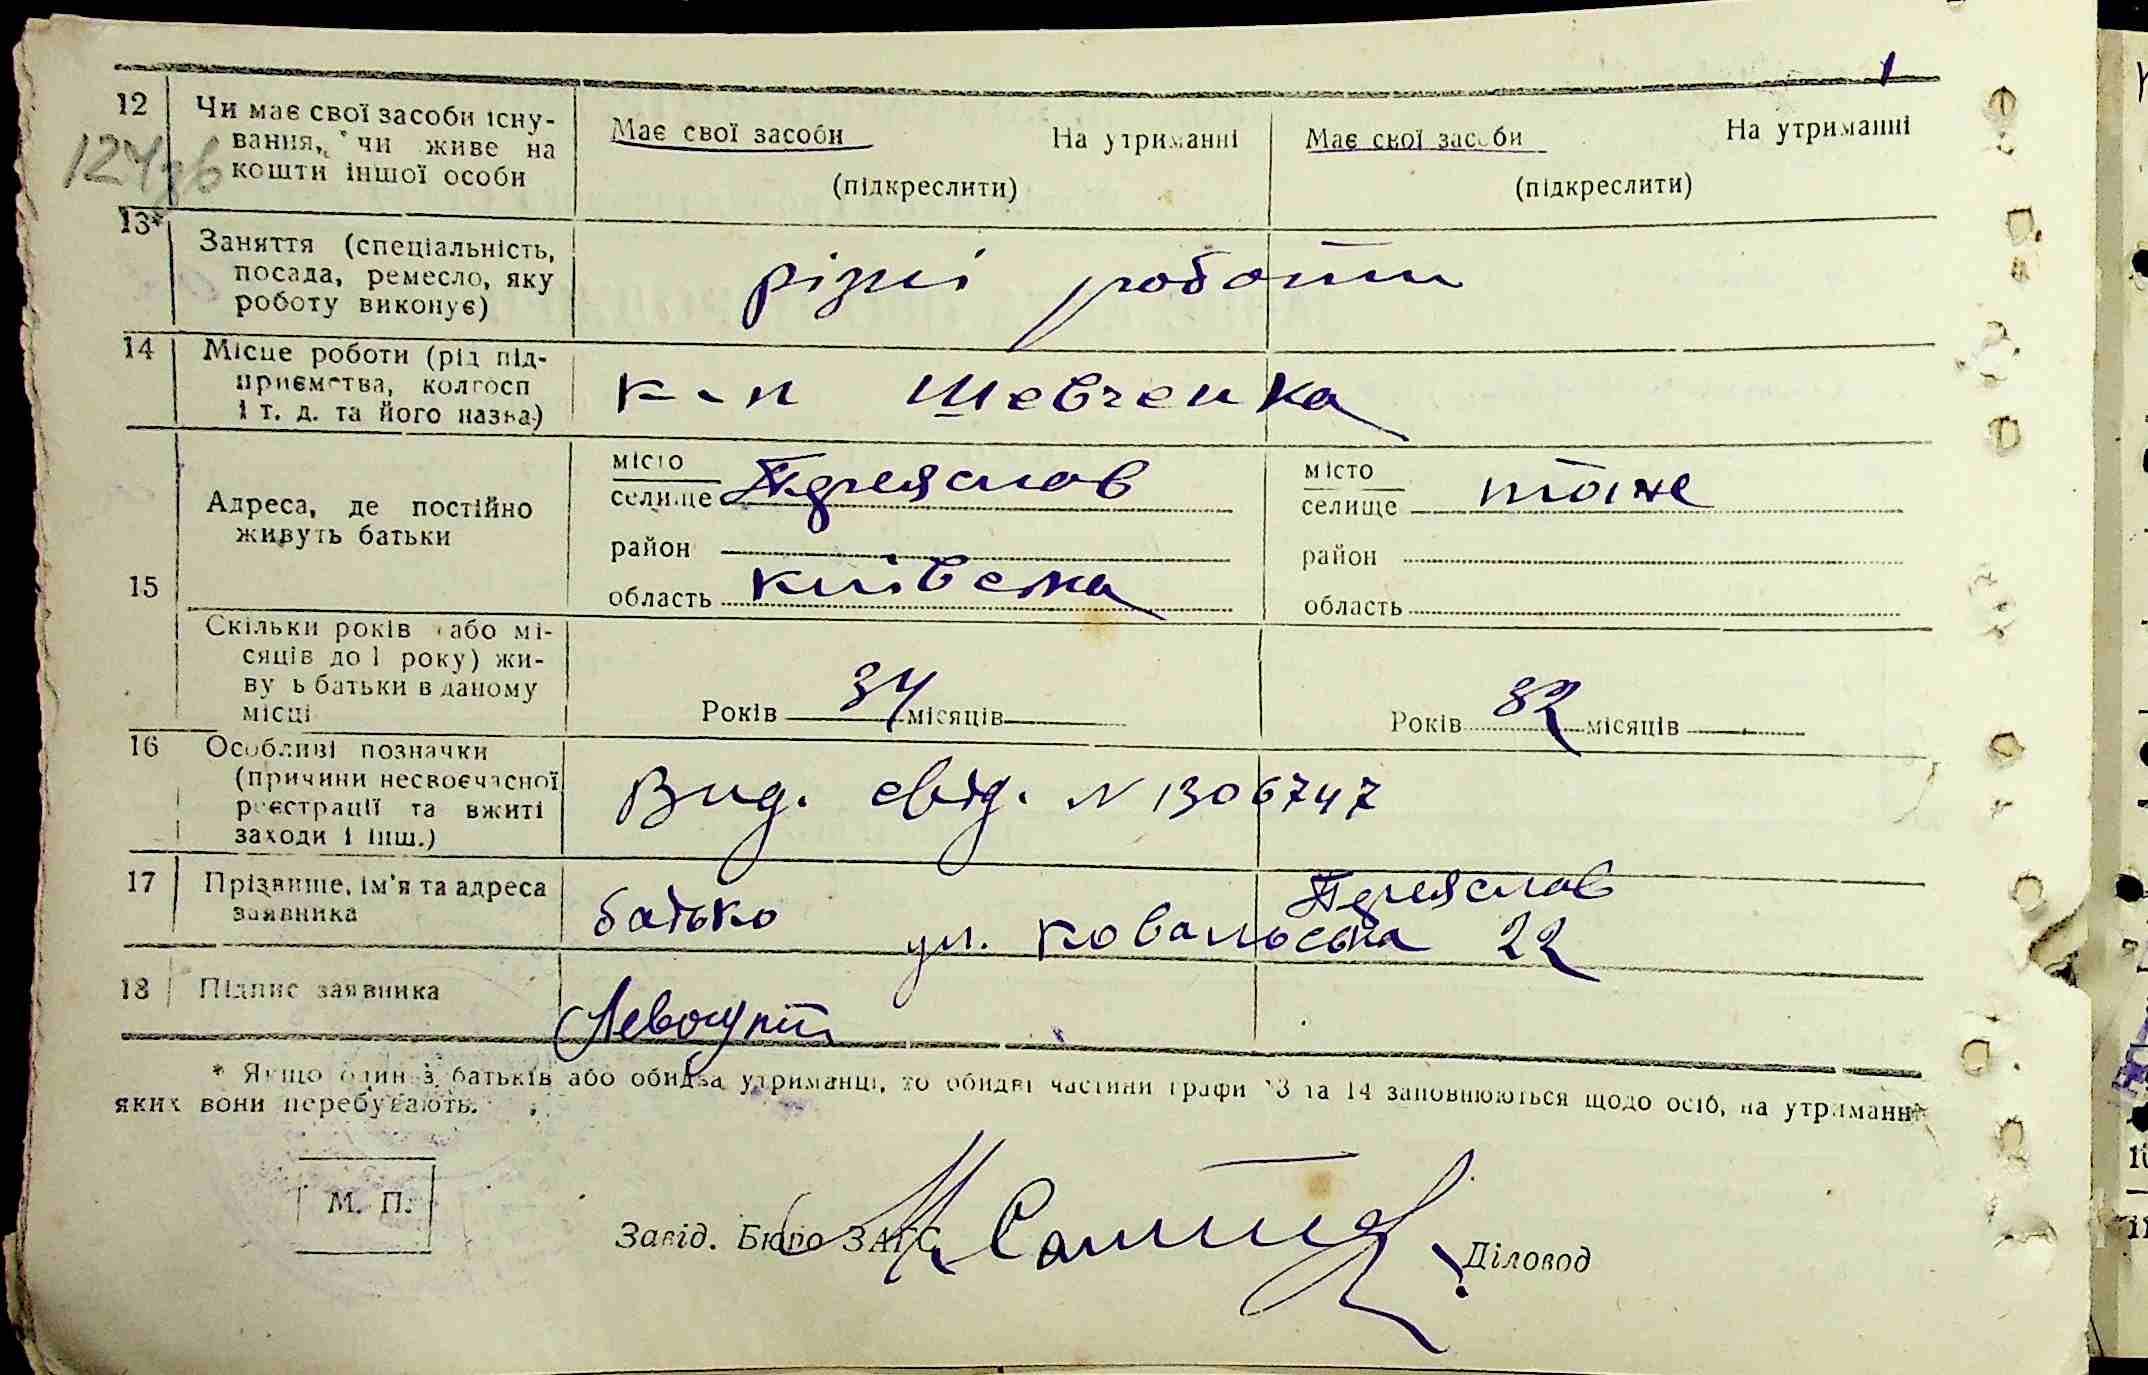 12 Чи має свої засоби існу-
вання, чи живе на
кошти іншої особи
Має свої засоби На утриманні
(підкреслити)
Має свої засоби На утриманні
(підкреслити)
13* Заняття (спеціальність,
посада, ремесло, яку
роботу виконує)
різні роботи
14 Місце роботи (рід під-
приємства, колгосп
і т. д. та його назва)
к-п Шевченка
15 Адреса, де постійно
живуть батьки
місто
селище Переяслав
район
область Київська
місто
селище тоже
район
область
Скільки років або мі-
сяців до 1 року) жи-
ву ь батьки в даному
місці
Років 34 місяців
Років 32 місяців
16 Особливі позначки
(причини несвоєчасної
реєстрації та вжиті
заходи і інш.)
Вид. свід. N 1306747
17 Прізвище, ім'я та адреса
заявника
батько Переяслав
ул. Ковальська 22
18 Підпис заявника
* Якщо один з батьків або обидва утриманці, то обидві частини графи 13 та 14 заповнюються щодо осіб, на утриманні
яких вони перебувають.
М. П.
Завід. Бюро ЗАГС
Діловод